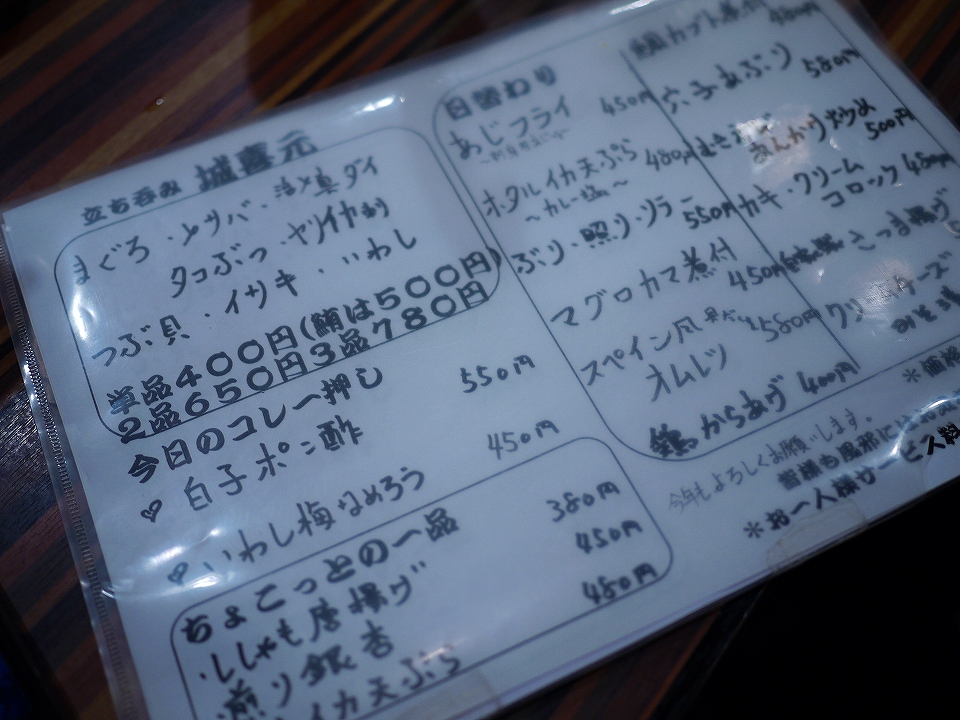 立ち呑み 城喜元
まぐろ・〆サバ・活〆真ダイ
タコぶつ・ヤリイカ
つぶ貝・イサキ・いわし
単品400円(鮪は500円)
2品650円3品780円
今日のコレ一押し
♡白子ポン酢 550円
♡いわし梅なめろう 450円
ちょこっとの一品
・ししゃも唐揚げ 380円
・煎り銀杏 450円
イカ天ぷら 480円
日替わり
あじフライ 450円
ホタルイカ天ぷら 480円
〜カレー塩〜
ぶり・照り・ソテー 550円
マグロカマ煮付 450円
スペイン風 580円
オムレツ
鶏からあげ 400円
鯛カブト煮付 480円
穴子あぶり 580円
あんかけ炒め 500円
カキ・クリーム
コロッケ 480円
さつま揚げ
今年もよろしくお願いします。
皆様も風邪には
*お一人様サービス料